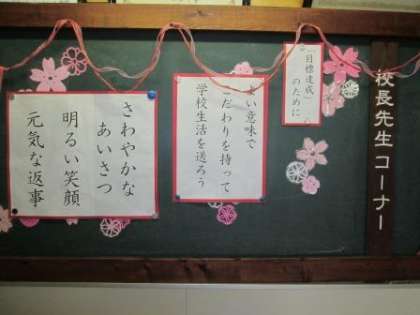 校長先生コーナー
「目標達成」
のために
良い意味で
こだわりを持って
学校生活を送ろう
さわやかな
あいさつ
明るい笑顔
元気な返事